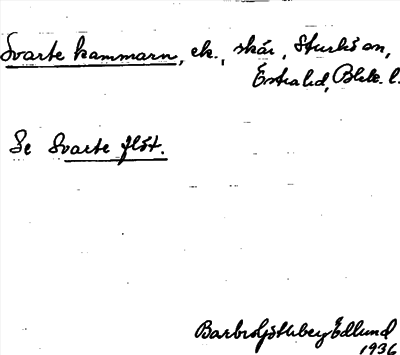 Svarte kammarn, ek., skär, Sturkö sn,
Östra hd, Blek. l.
Se Svarte flöt.
Barbro Götlberg Edlund
1936